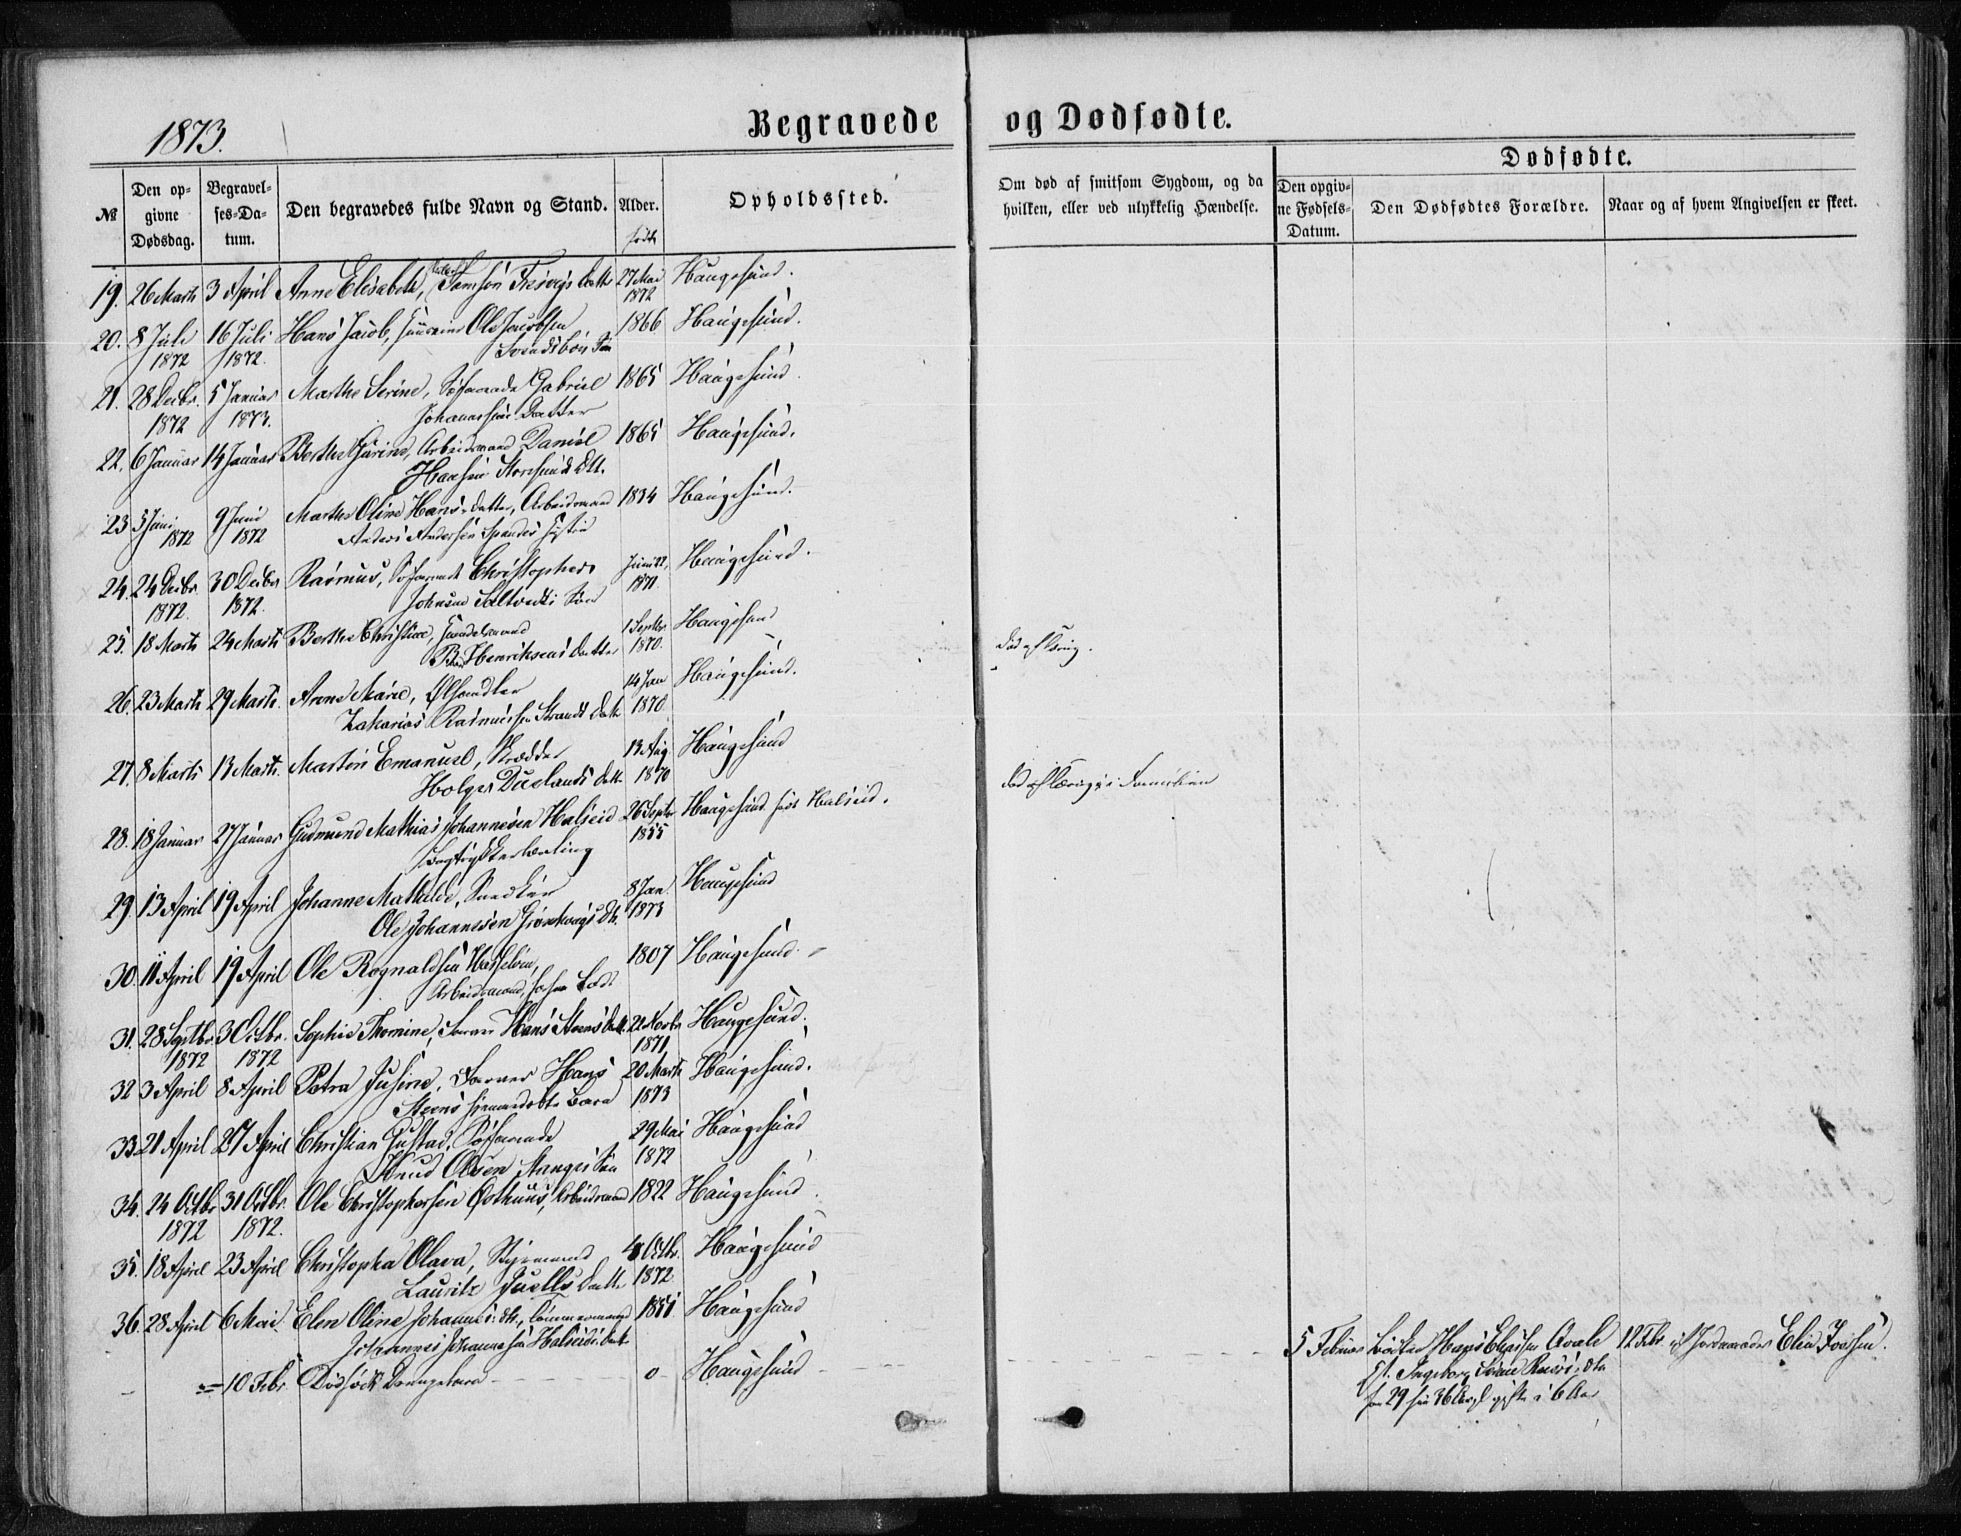 1873.
Begravede og Dødfødte.
Dødfødte.
№
Den op-
givne
Dødsdag.
Begravel-
ses-Da-
tum.
Den begravedes fulde Navn og Stand.
Alder.
født
Opholdssted.
Om død af smitsom Sygdom, og da
hvilken, eller ved ulykkelig Hændelse.
Den opgiv-
ne Fødsels-
Datum.
Den Dødfødtes Forældre.
Naar og af hvem Angivelsen er skeet.
19. 26 Marts 3 April Anne Elisabeth, Samson Datter 27 Mai Haugesund.
1872
20. 8 Juli 16 Juli Hans Jacob, Ole Jacobsen 1866 Haugesund.
1872 1872. Søn
21. 28 Decbr. 5 Januar Marthe Serine, Søfarende Gabriel 1865 Haugesund.
1872 1873. Datter
22. 6 Januar 14 Januar Berthe Gurine, Arbeidsmand Daniel 1865 Haugesund.
Hansen Storesund Dtt.
23 5 Juni 9 Juni Marthe Oline Hansdatter, Arbeidsmand 1834 Haugesund.
1872 1872 Anders Andersen
24. 24 Decbr. 30 Decbr Rasmus, Søfarende Christopher Juni 22, Haugesund.
1872. 1872. Johnsen Saltveds Søn 1871.
25. 18 Marts 24 Marts Berthe Christine, Handelsmand 1 Septbr. Haugesund
Henriksens Datter 1870. død af
26. 23 Marts 29 Marts. Anne Marie, Ølhandler 14 Jan Haugesund.
Zakarias Rasmussen Strands Datter 1870.
27. 8 Marts 13 Marts. Martin Emanuel, Skrædder 13 Aug. Haugesund
Holger Duelands 1870 død af i Familien
28. 18 Januar 27 Januar Gudmund Mathias Johannesen Halseid 26 Septbr Haugesund født Halseid.
Bogtrykkerlærling 1855
29. 13 April 19 April Johanne Mathilde, Snedker 8 Jan. Haugesund
Ole Johannesen Dtr. 1873
30. 11 April 19 April Ole Rognaldsen 1807 Haugesund.
Arbeidsmand,
31. 28 Septbr. 3 Octbr. Sophie Thomine, Hans Steens Datt. 22 Novbr Haugesund.
1872 1872 1871,
32 3 April 8 April Petra Jusine, Hans 20 Marts Haugesund.
Steens hjemmedøbte Barn 1873
33. 21 April 27 April Christian Gustav, Søfarende 29 Mai Haugesund
Knud Olsen Manges Søn 1872
34. 24 Octbr 31 Octbr. Ole Christophersen Østhuus, Arbeidsmand 1822 Haugesund.
1872 1872.
35. 18 April 23 April Christopha Olava, Styrmand 4 Octbr. Haugesund
Lauritz Juells Datter 1872.
36. 28 April 6 Mai. Elen Oline Johannesdtr., Tømmermand 1851 Haugesund
Johannes Johannesen Halseids Datt
10 Febr. Dødfødt Drengebarn 0 Haugesund
5 Februar Bødker Hans Qvale 12 Febr. af Jordemoder Elen Joosen.
Ingeborg
29 36 Aar, gifte i 6 Aar